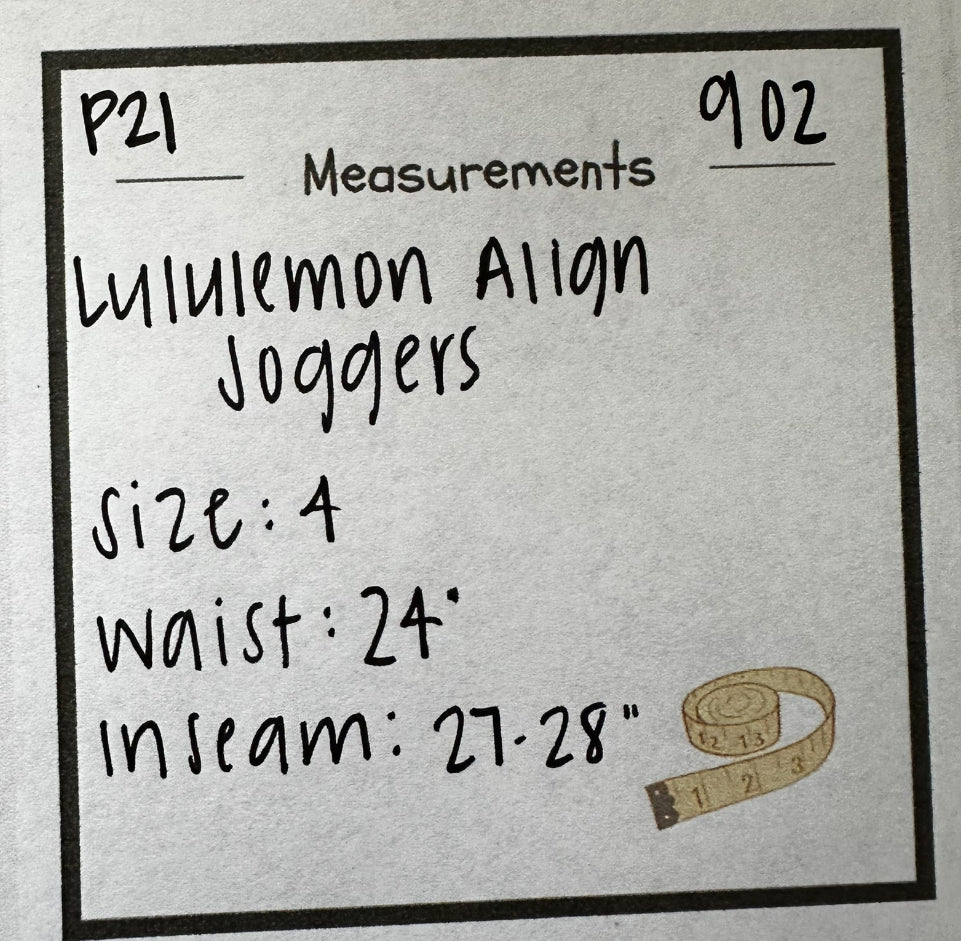 P21
902
Measurements
Lululemon Align
Joggers
Size: 4
Waist: 24"
Inseam: 27-28"
12 13
1 2 3